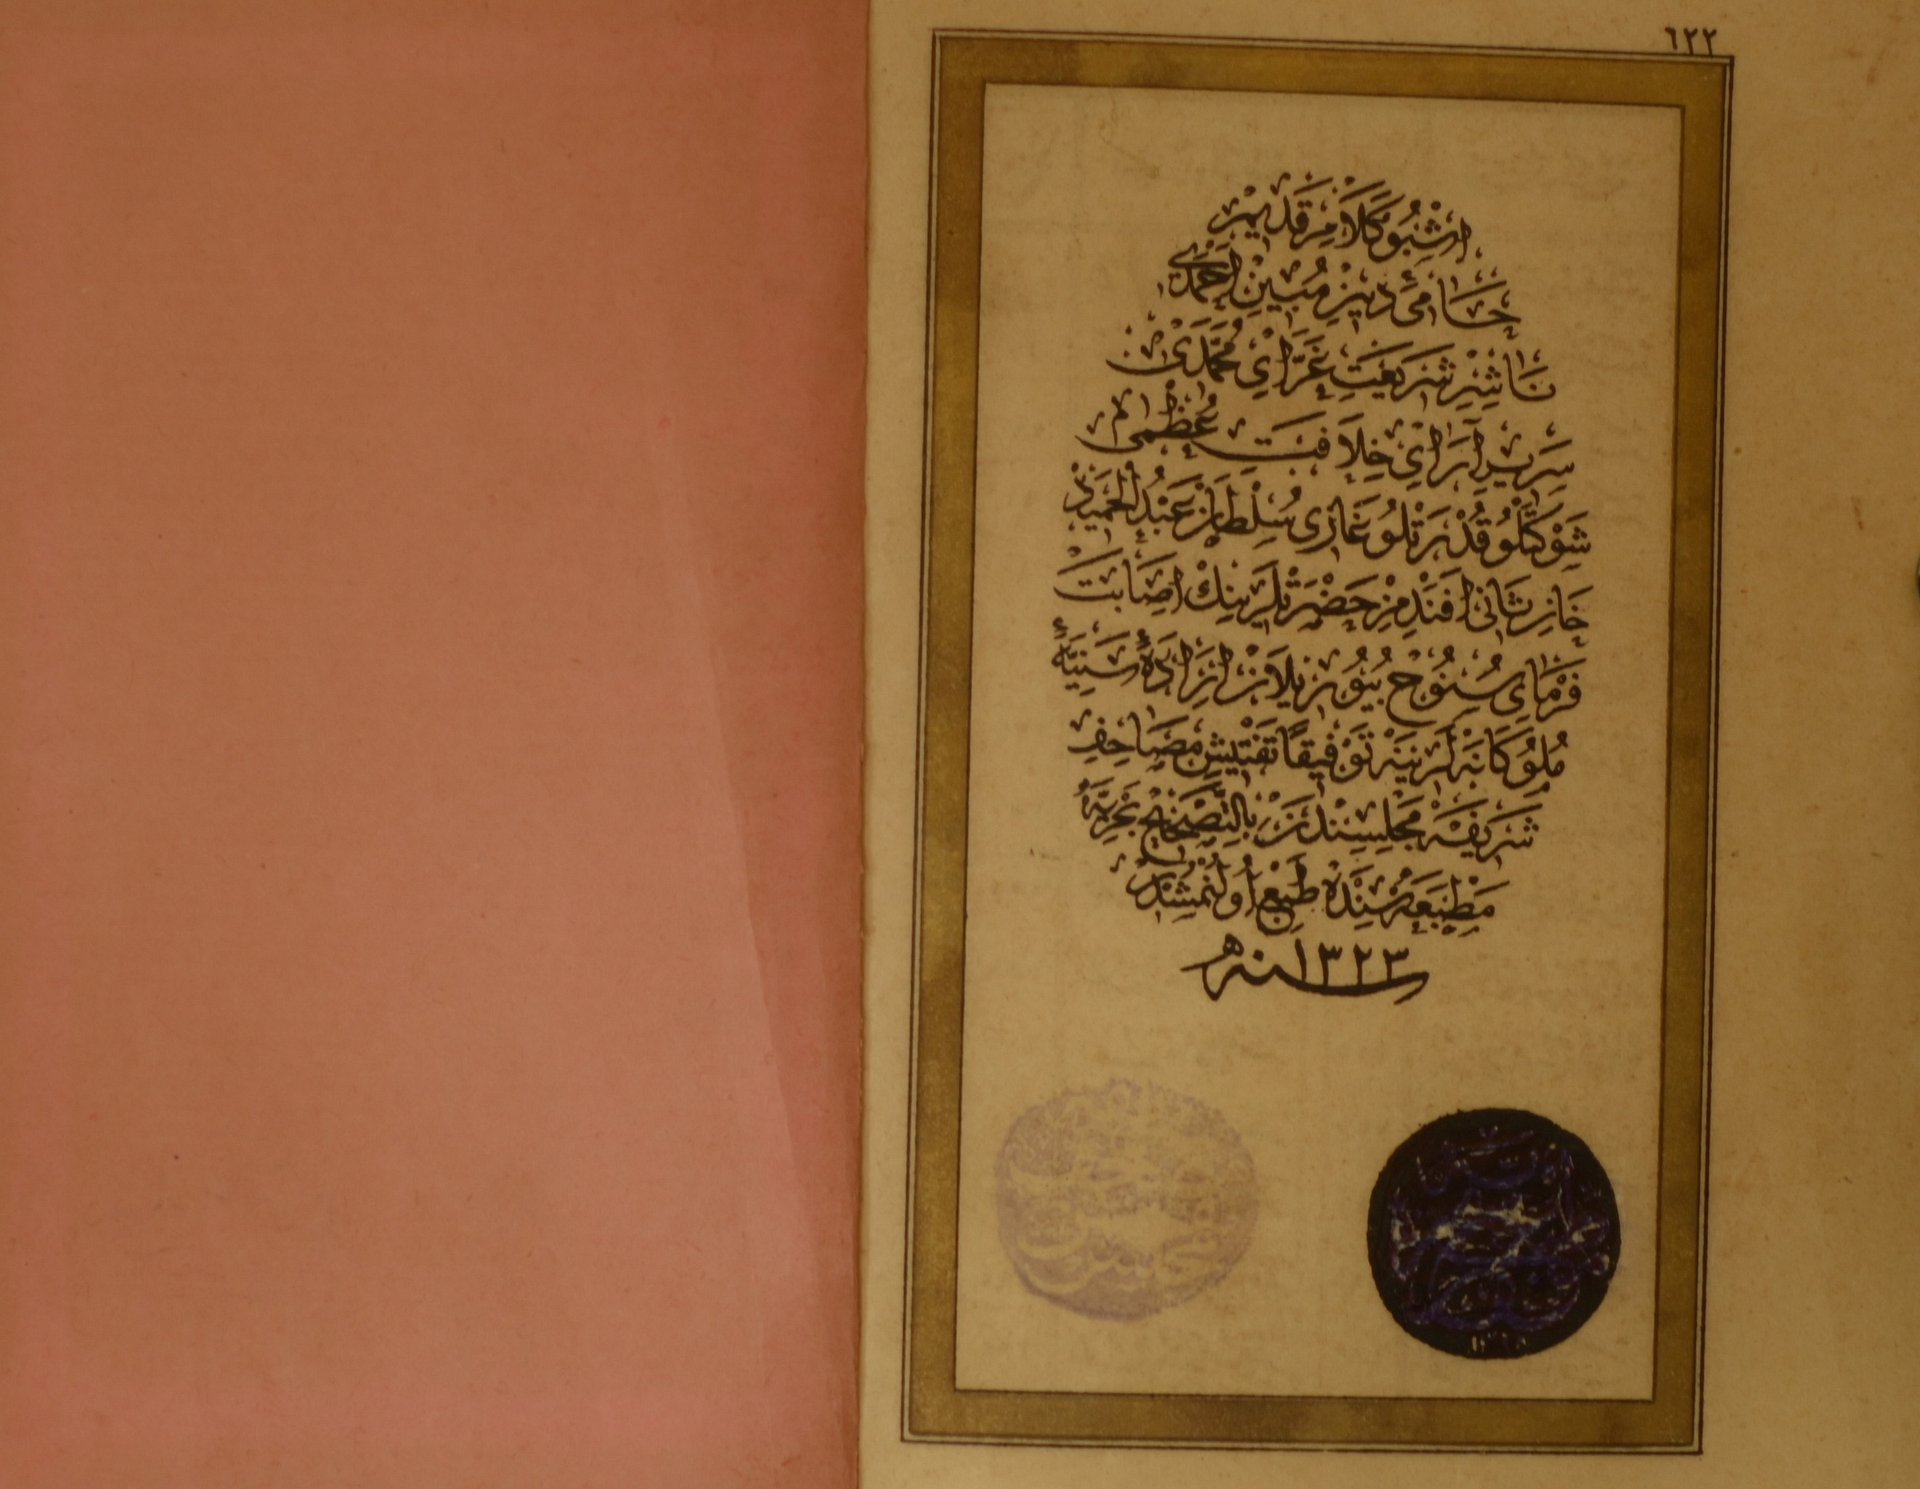 ٦٢٢
اِشْبُو كَلَامِ قَدِيمْ
حَامِئِ دِينِ مُبِينِ اَحْمَدِى
نَاشِرِ شَرِيعَتِ غَرَّاىِ مُحَمَّدِى
سَرِيرِ آرَاىِ خِلَافَتِ عُظْمٰى
شَوْكَتْلُو قُدْرَتْلُو غَازِى سُلْطَانْ عَبْدُ الْحَمِيدْ
خَانِ ثَانِى اَفَنْدِمِزْ حَضْرَتْلَرِينِكْ اِصَابَتْ
فَرْمَاىِ سُنُوحْ بُيُورِيلَانْ اِرَادَهٔ سَنِيَّهٔ
مُلُوكَانَهْ لَرِينَهْ تَوْفِيقًا تَفْتِيشِ مَصَاحِفِ
شَرِيفَهْ مَجْلِسِنْدَنْ بِالتَّصْحِيحْ بَحْرِيَّهْ
مَطْبَعَهْ سِنْدَهْ طَبْعْ اُولُنْمِشْدُرْ
سنه ١٣٢٣